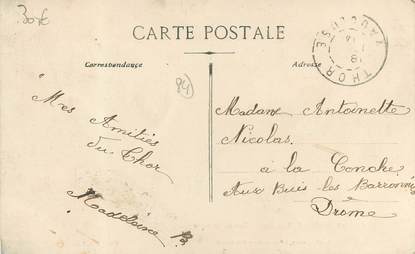 30€
CARTE POSTALE
Correspondance
Adresse
THOR
VAUCLUSE
84
Mes
Amitiés
du Thor
Madeleine B.
Madame Antoinette
Nicolas.
à la Conche
Aux Buis les Barronnies
Drôme